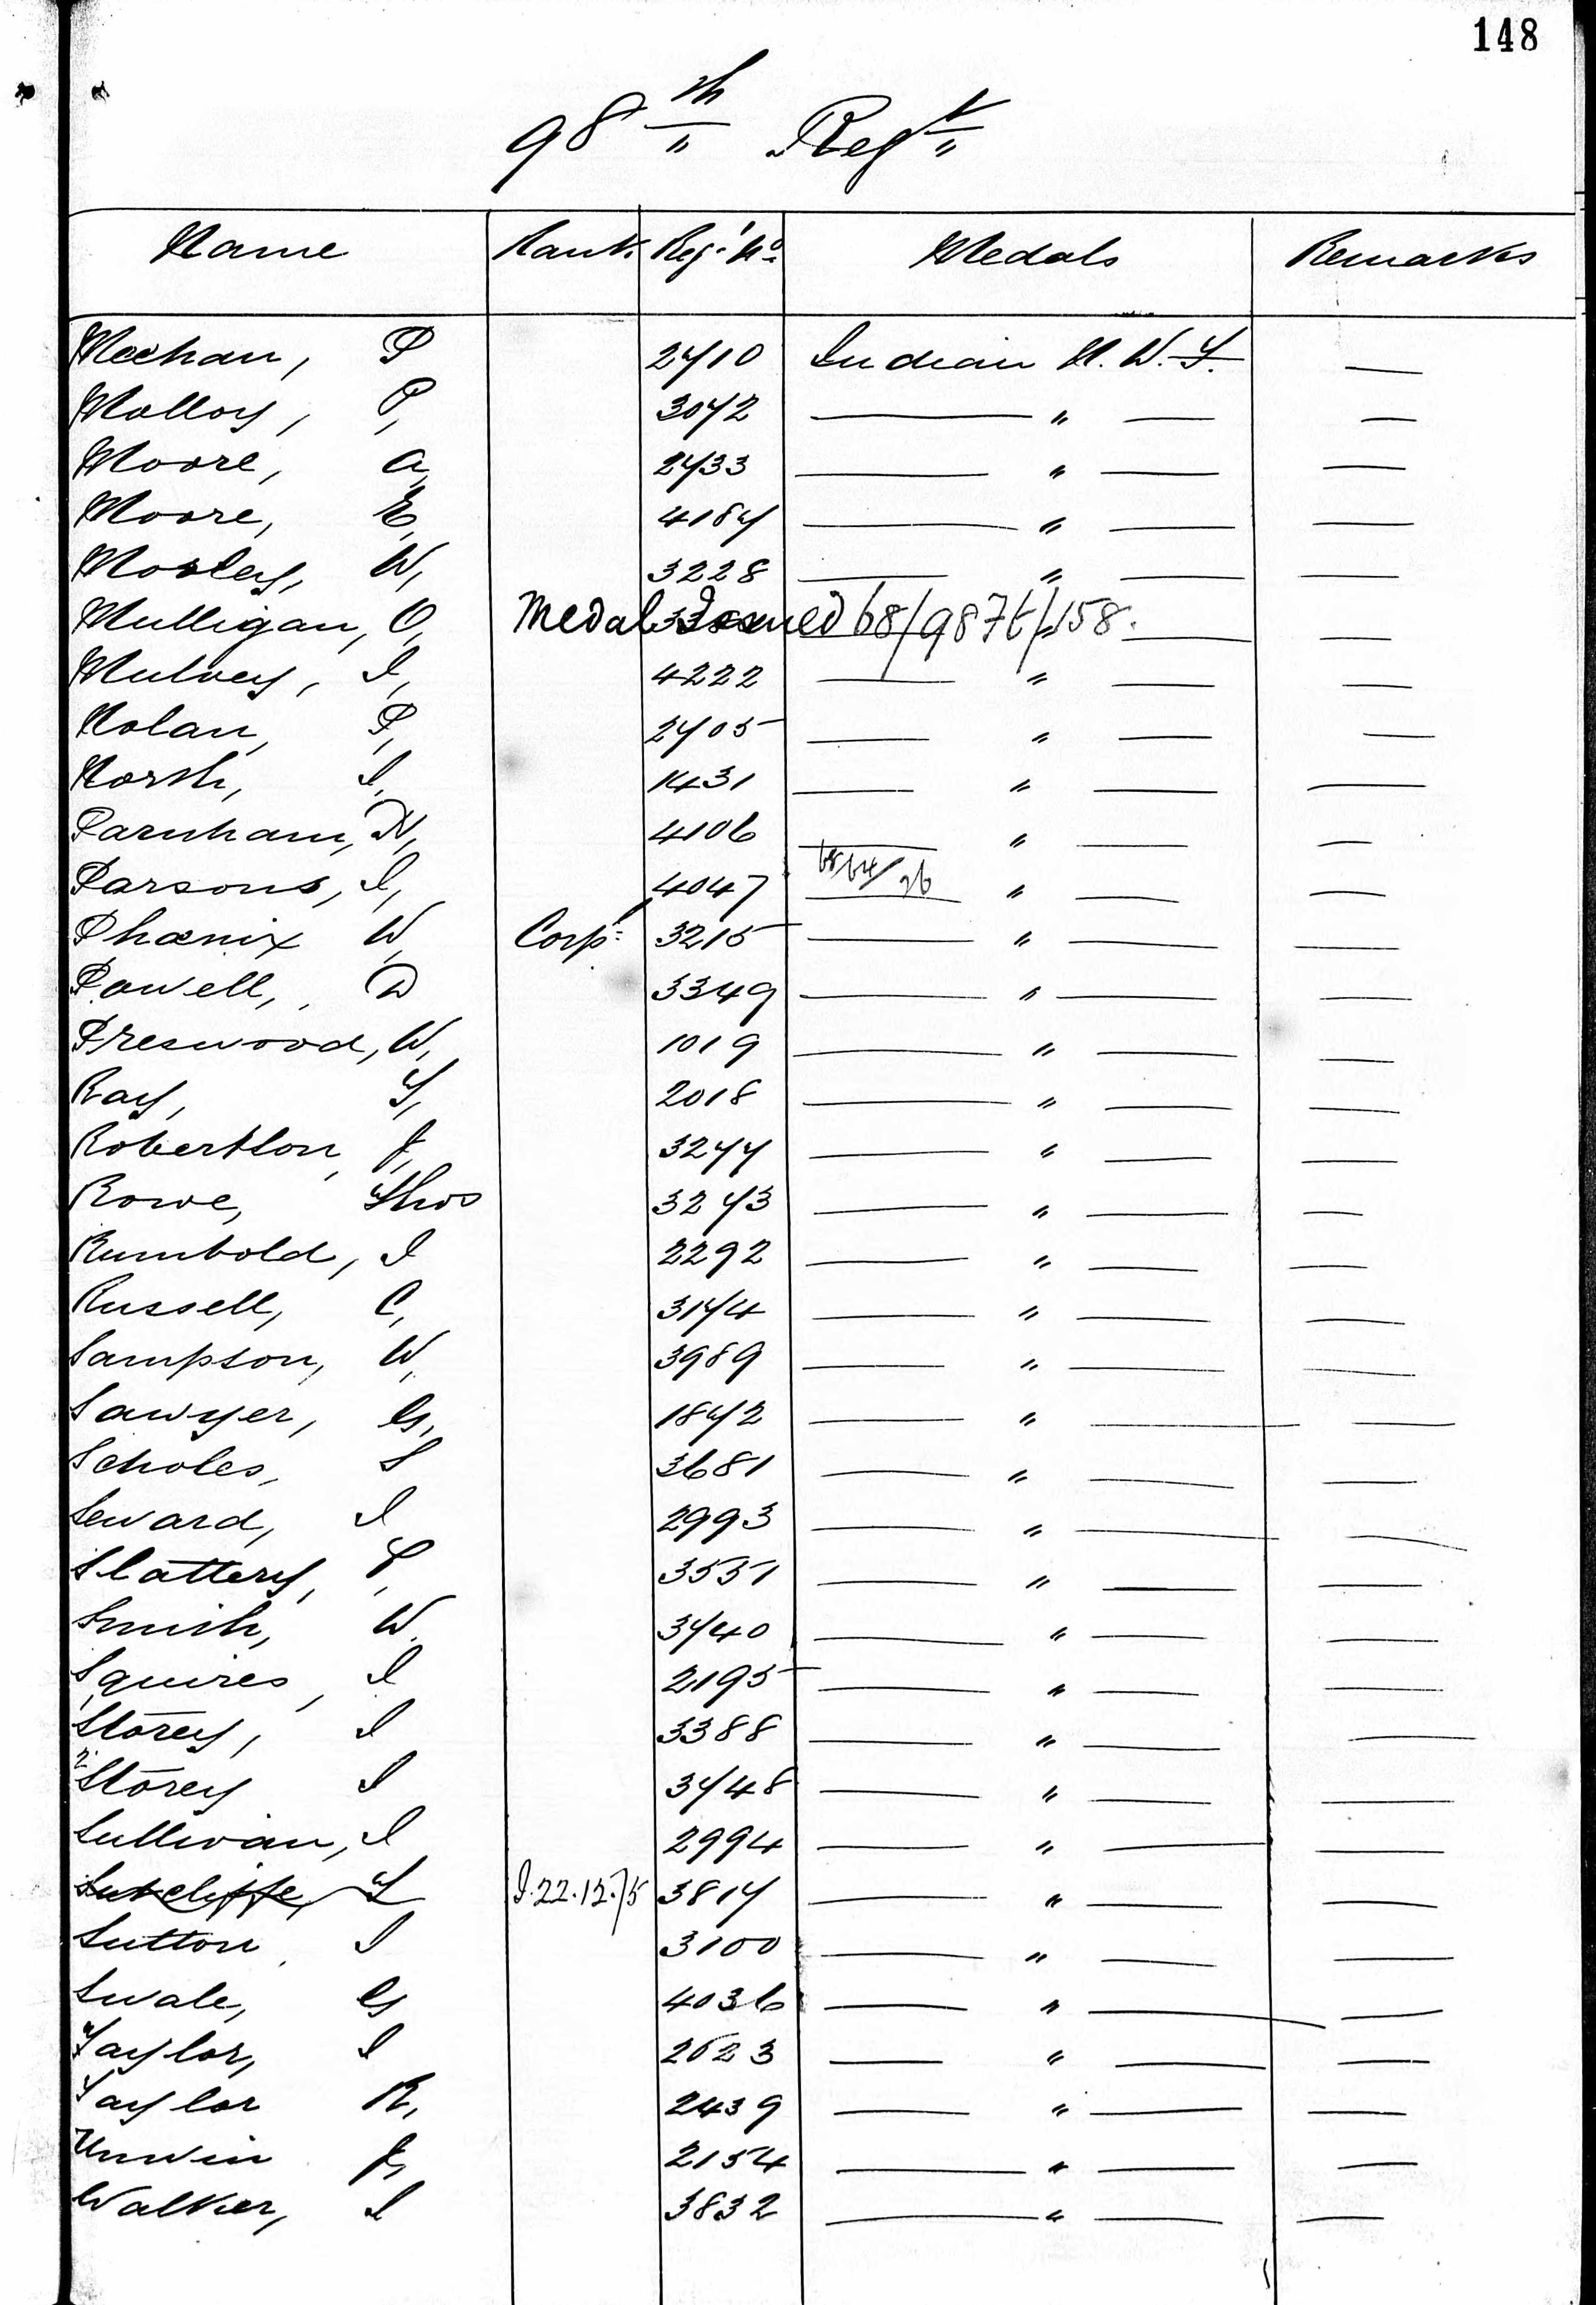 148
98th Regt
Name Rank Reg.l No. Medals Remarks
Meehan, P 2710 Indian N. W. F. —
Molloy, P, 3072 — " — —
Moore, A, 2733 — " — —
Moore, E, 4187 — " — —
Mosley, W, 3228 — " — —
Mulligan, O, Medal Issued 68/9876/158. — —
Mulvey, J, 4222 — " — —
Nolan, P, 2705 — " — —
North, J, 1431 — " — —
Parnham, W, 4106 — " — —
Parsons, J, 4047 68/64/26 — " — —
Phœnix W, Corpl 3215 — " — —
Powell, D 3349 — " — —
Preswood, W, 1019 — " — —
Ray, T, 2018 — " — —
Robertson, J, 3277 — " — —
Rowe, Thos 3273 — " — —
Rumbold, J 2292 — " — —
Russell, C, 3174 — " — —
Sampson, W, 3989 — " — —
Sawyer, G, 1872 — " — —
Scholes, S 3681 — " — —
Seward, J 2993 — " — —
Slattery, P, 3551 — " — —
Smith, W. 3740 — " — —
Squires, J 2195 — " — —
Storey, J 3388 — " — —
2 Storey J 3748 — " — —
Sullivan, J 2994 — " — —
Sutcliffe, T I.22.12.75 3817 — " — —
Sutton, J 3100 — " — —
Swale, G 4036 — " — —
Taylor, J 2623 — " — —
Taylor R, 2439 — " — —
Unwin J, 2154 — " — —
Walker, J 3832 — " — —